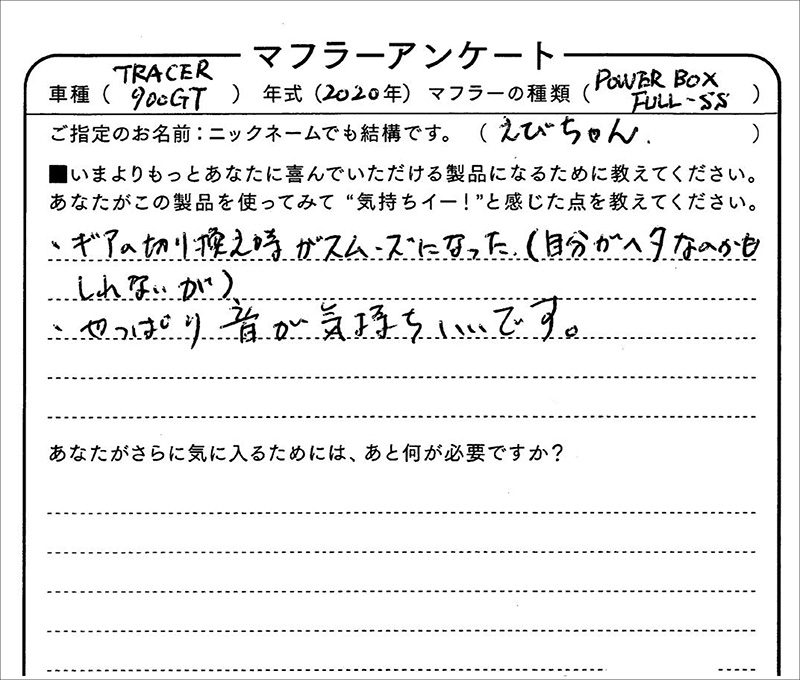 マフラーアンケート
車種（TRACER 900GT）　年式（2020年）マフラーの種類（POWER BOX FULL-SS）
ご指定のお名前：ニックネームでも結構です。（えびちゃん.）
■いまよりもっとあなたに喜んでいただける製品になるために教えてください。
あなたがこの製品を使ってみて“気持ちイー！”と感じた点を教えてください。
、ギアの切り換え時がスムーズになった.（自分がヘタなのかも
しれないが）
、やっぱり音が気持ちいいです。
あなたがさらに気に入るためには、あと何が必要ですか？